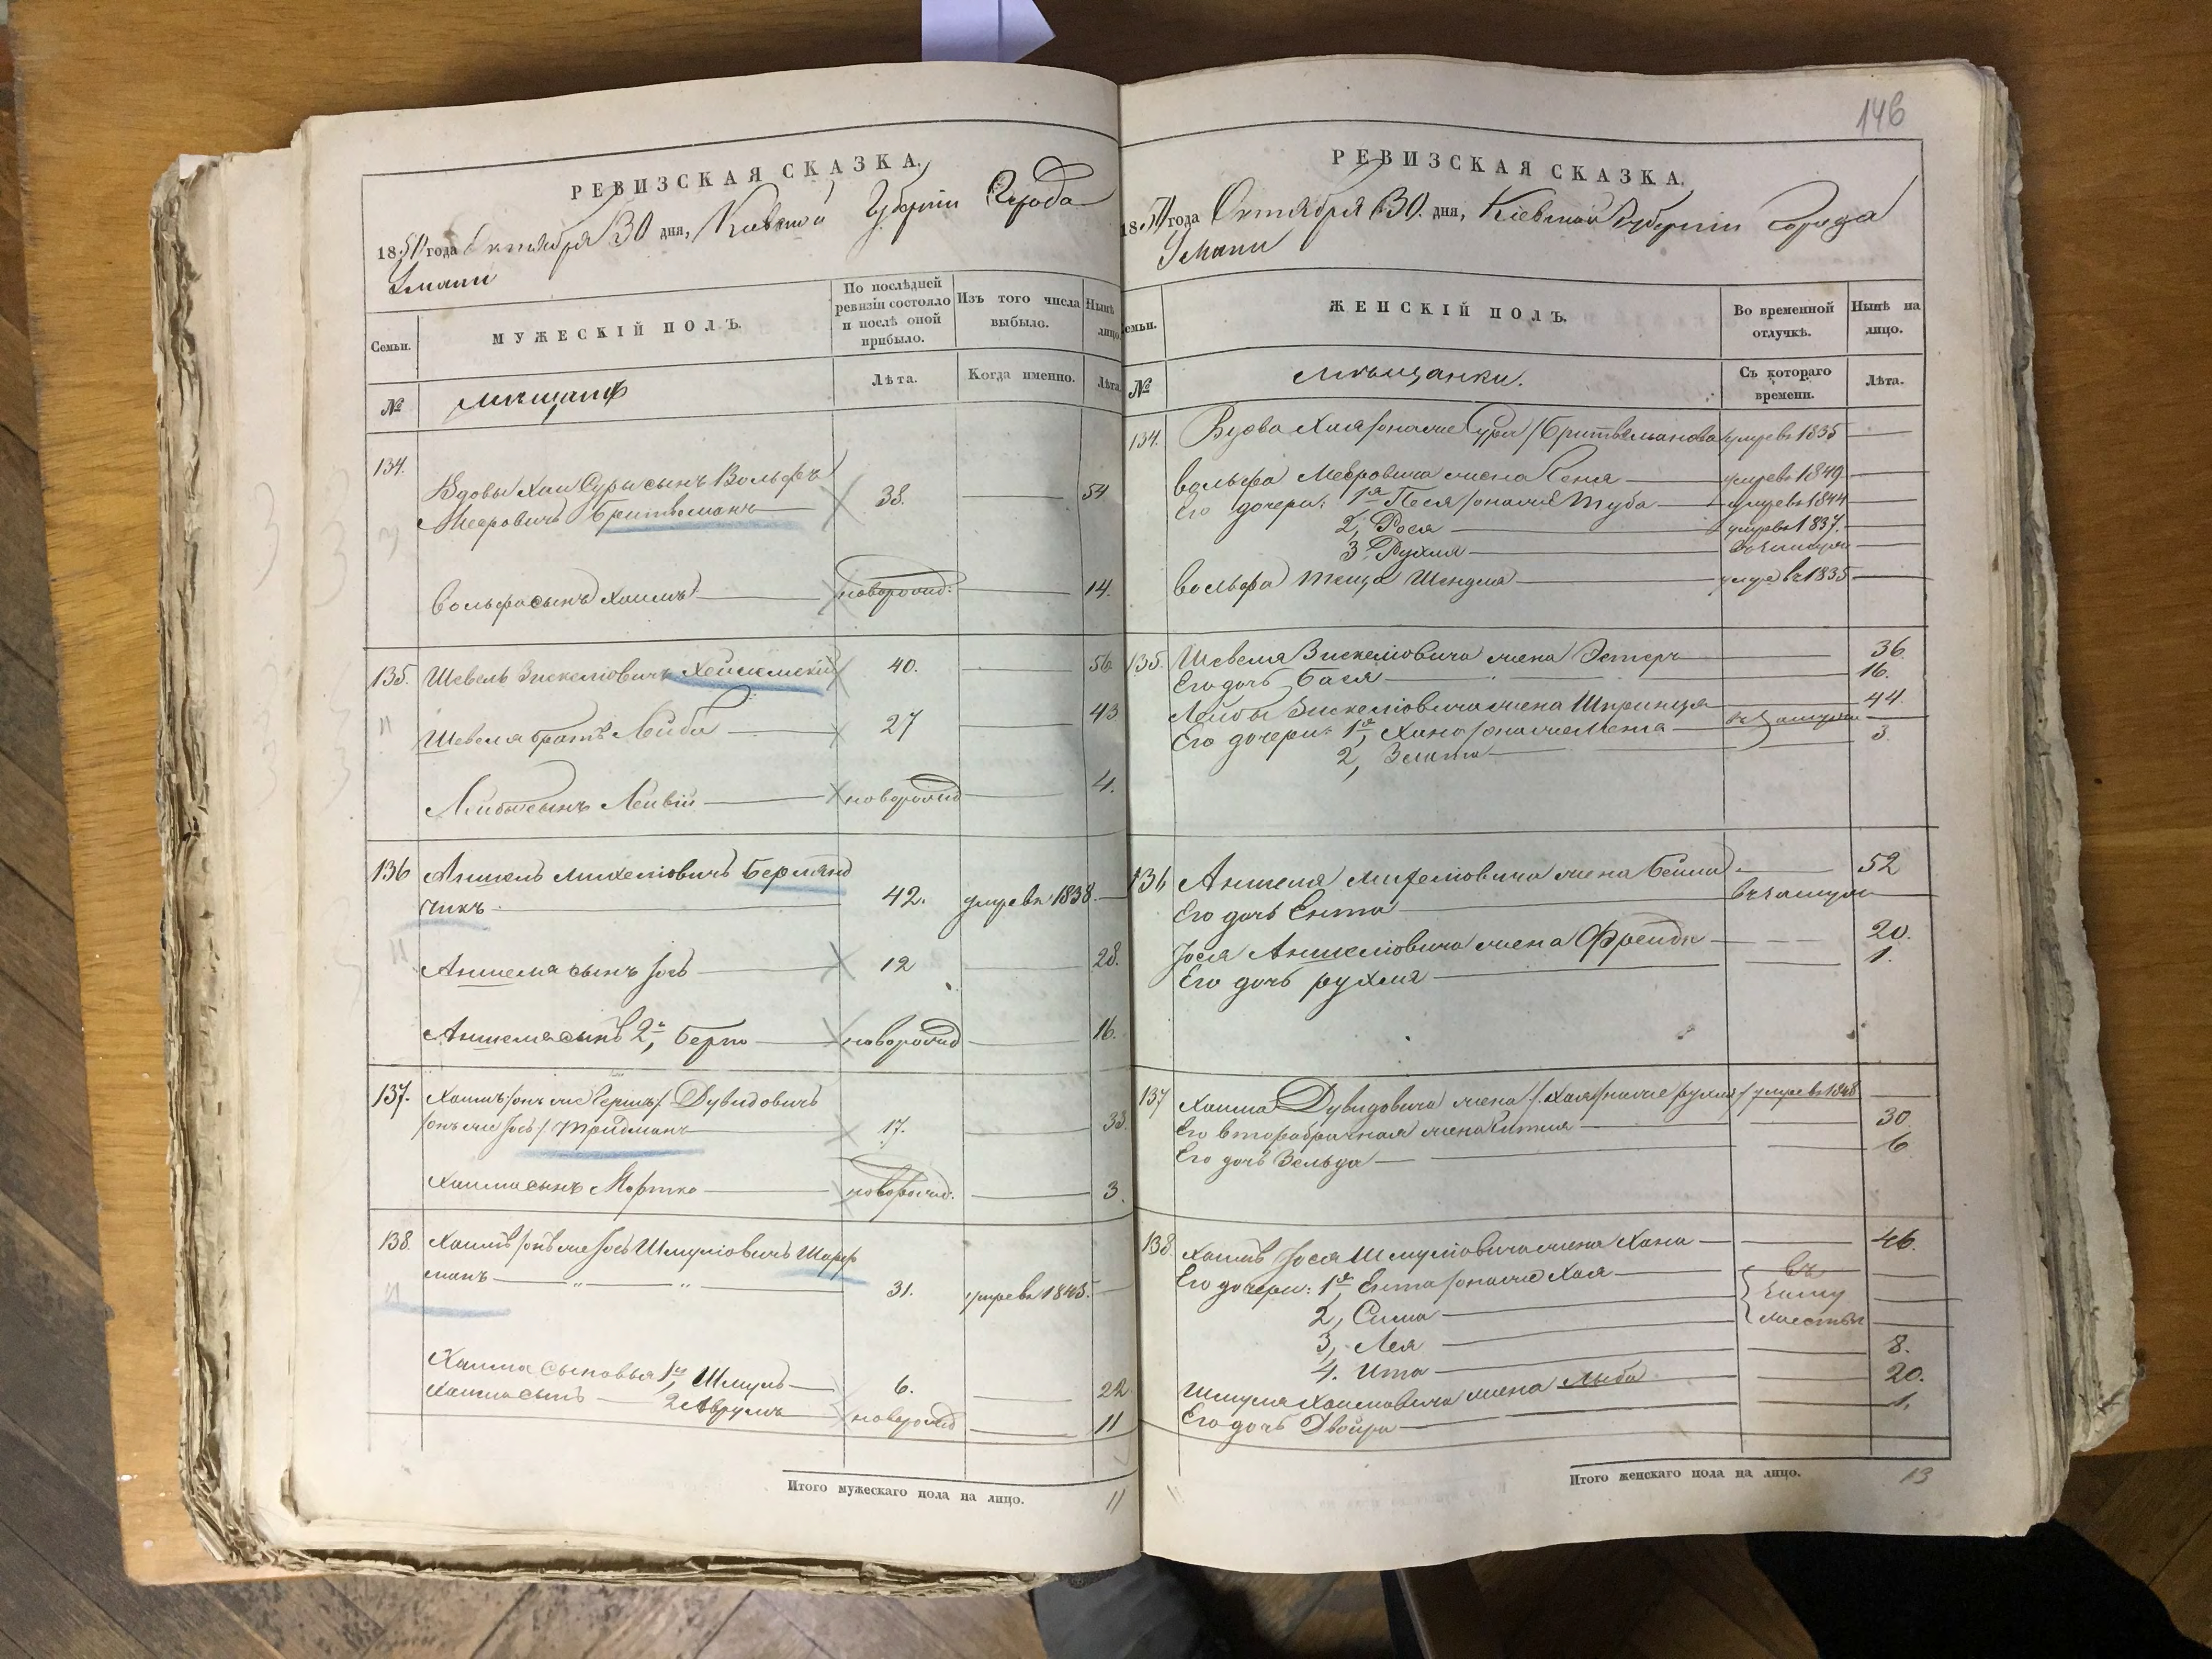 РЕВИЗСКАЯ СКАЗКА.
1850 года Октября 30 дня, Киевской Губернии Города
Умани
Семьи.
МУЖЕСКІЙ ПОЛЪ.
По послѣдней ревизіи состояло и послѣ оной прибыло.
Изъ того числа выбыло.
Нынѣ лицо.
№
Мѣщане
Лѣта.
Когда именно.
Лѣта.
134.
Вдовы Хаи Суры сынъ Вольфъ
Мееровичъ Бритванъ 38. 54
Вольфа сынъ Хаимъ новорожд: 14.
135. Шевель Зискеліовичъ 40. 56
Шевеля братъ Лейба 27 43
Лейбы сынъ Лейвій новорожд 4.
136 Аншель Михеліовичъ Берлянд
чикъ 42. умре въ 1838.
Аншеля сынъ Іось 12 28.
Аншеля сынъ 2й, Берко новорожд 16.
137. Хаимъ /онъ же Гершъ/ Дувидовичъ
/онъ же Іось/ Фридманъ 17. 33.
Хаима сынъ Мортко новорожд. 3.
138. Хаимъ /онъ же Іось Шмуліовичъ Шарф
манъ 31. умре въ 1845.
Хаима сыновья 1й, Шмуль 6. 22
Хаима сынъ 2 Аврумъ новорожд 11
Итого мужескаго пола на лицо. 11
146
РЕВИЗСКАЯ СКАЗКА.
1850 года Октября 30. дня, Кіевской Губерніи Города
Умани
Семьи.
ЖЕНСКІЙ ПОЛЪ.
Во временной отлучкѣ.
Нынѣ на лицо.
№
Мѣщанки.
Съ котораго времени.
Лѣта.
134. Вдова Хая /она же Сура/ умре въ 1835
Вольфа Мееровича жена Геня умре въ 1849
Его дочери: 1я Песя /она же Туба умре въ 1844
2, Рося умре въ 1837.
3. Рухля въ замуж
Вольфа теща Шендля умре въ 1835
135. Шевеля Зискеліовича жена Эстеръ 36
Его дочь Бася 16.
Лейбы Зискеліовича жена Шпринця 44
Его дочери: 1я, Хана /она же Меня въ замуж
2, Злата 3.
136 Аншеля Михеліовича жена Бейла 52
Его дочь Ента въ замуж
Іося Аншеліовича жена Фрейда 20.
Его дочь Рухля 1.
137 Хаима Дувидовича жена /Хая /она же Рухля/ умре въ 1848
Его второбрачная жена Гитля 30
Его дочь Зельда 6
138. Хаимъ Іося Шмуліовича жена Хана 46.
Его дочери: 1я, Ента /она же Хая въ
2, Сима заму
3, Лея жествѣ
4. Ита 8.
Шмуля Хаимовича жена Лыба 20.
Его дочь Двойра 1.
Итого женскаго пола на лицо. 13